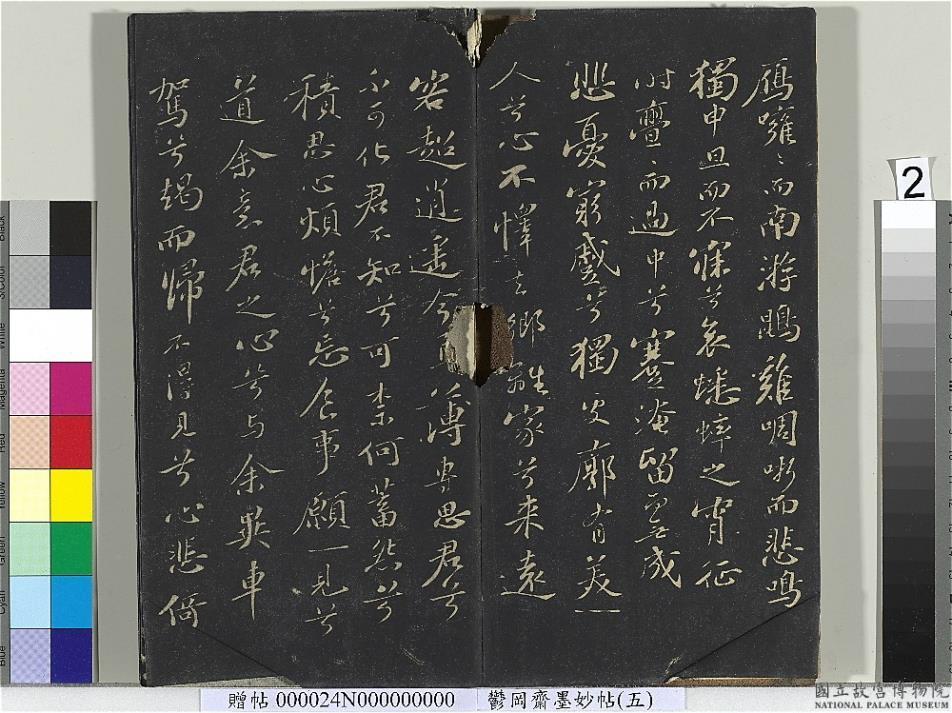 鴈噰〻而南游鵾雞啁哳而悲鳴
獨申旦而不寐兮哀蟋蟀之宵征
時亹〻而過中兮蹇淹留而無成
悲憂窮慼兮獨處廓有美一
人兮心不懌去鄉離家兮来遠
客超逍遥今焉薄專思君兮
不可化君不知兮可柰何蓄怨兮
積思心煩憺兮忘食事願一見兮
道余意君之心兮与余異車
駕兮朅而歸不得見兮心悲倚
2
贈帖 000024N000000000 鬱岡齋墨妙帖(五)
國立故宮博物院
NATIONAL PALACE MUSEUM
Black
3/Color
White
Magenta
Red
Yellow
Green
Cyan
Blue